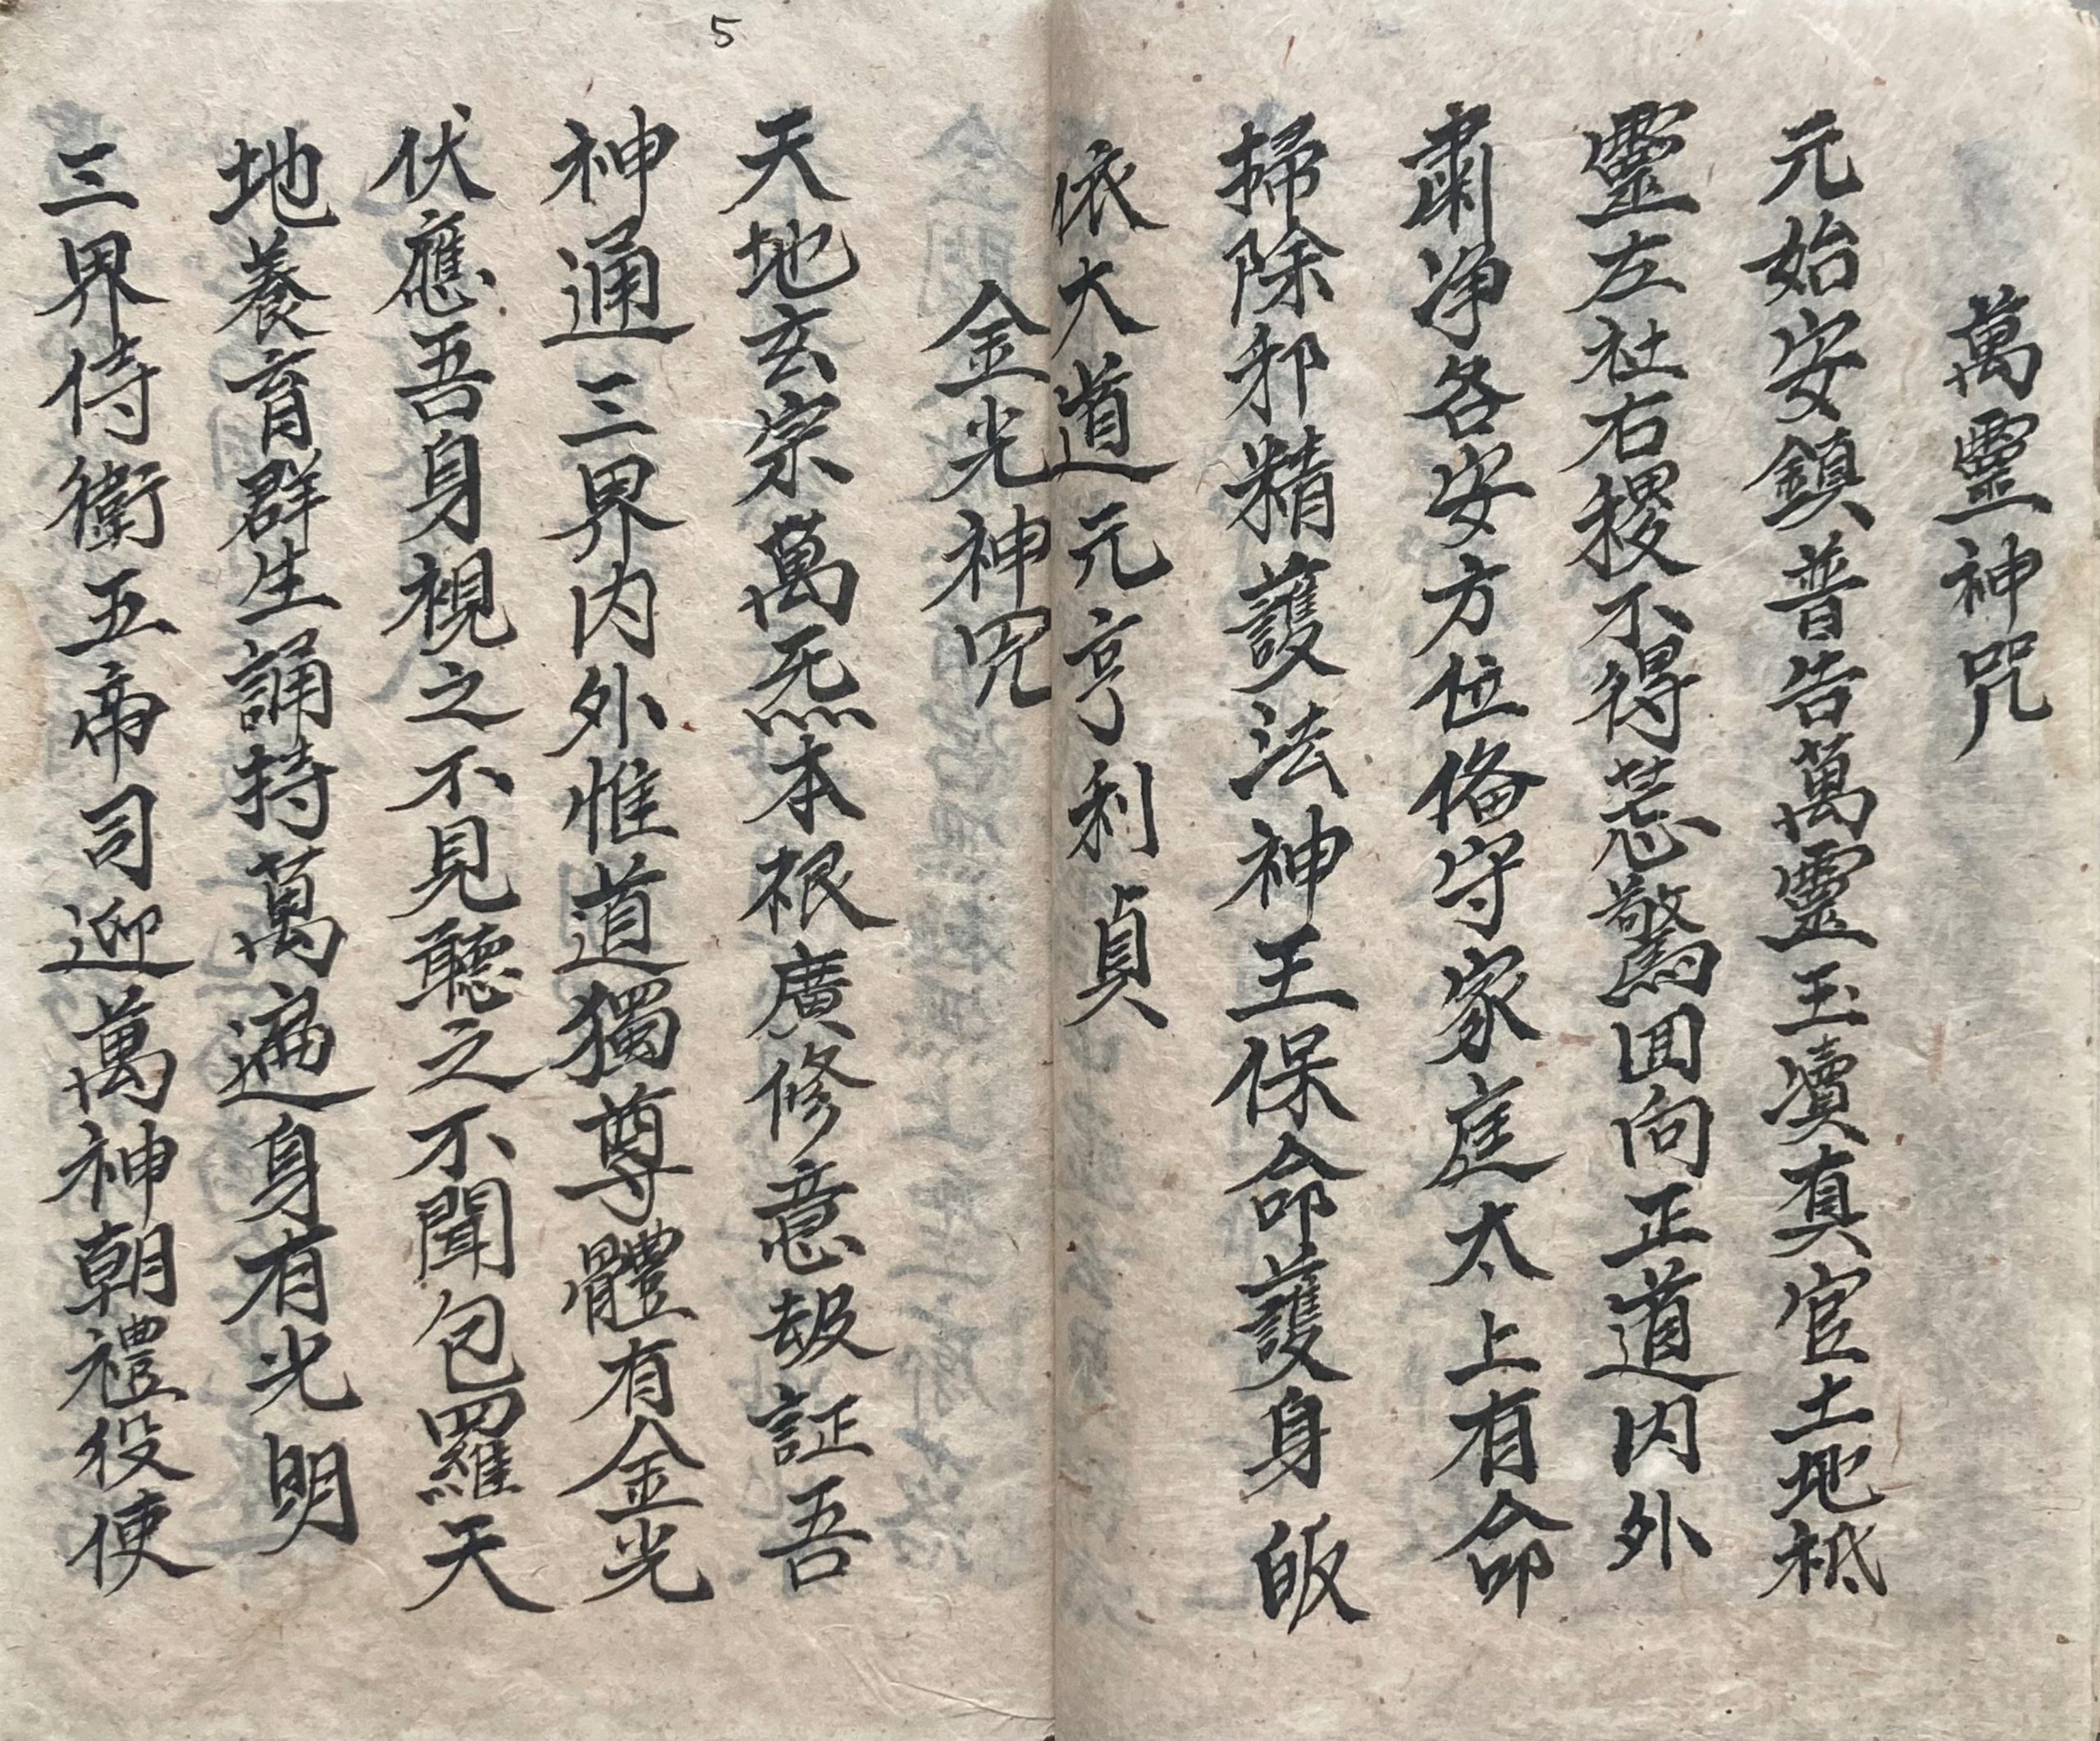 萬靈神咒
元始安鎮普告萬靈玉瀆真官土地祗
靈左社右稷不得忢驚囬向正道内外
肅净各安方位俻守家庭太上有命
掃除邪精護法神王保命護身皈
依大道元亨利貞
金光神咒
天地玄宗萬炁本根廣修意刼証吾
神通三界内外惟道獨尊體有金光
伏應吾身視之不見聽之不聞包羅天
地養育群生誦持萬遍身有光明
三界侍衛五帝司迎萬神朝禮役使
5